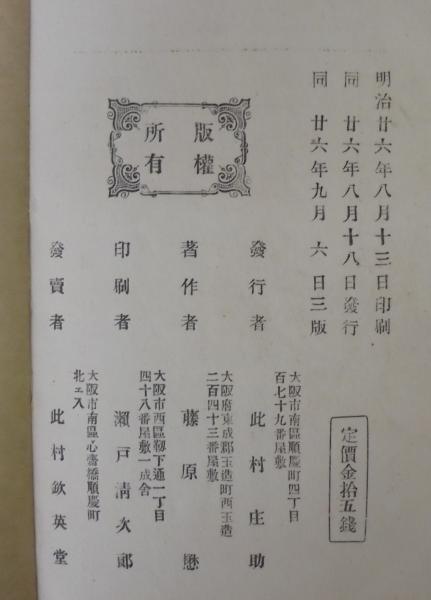 明治廿六年八月十三日印刷
同 廿六年八月十八日發行
同 廿六年九月 六 日三版
定價金拾五錢
版權
所有
大阪市南區順慶町四丁目
百七十九番屋敷
發行者 此村庄助
大阪府東成郡玉造町西玉造
二百四十三番屋敷
著作者 藤原懋
大阪市西區靱下通一丁目
四十八番屋敷一成舍
印刷者 瀨戸淸次郎
大阪市南區心齋橋順慶町
北ェ入
發賣者 此村欽英堂